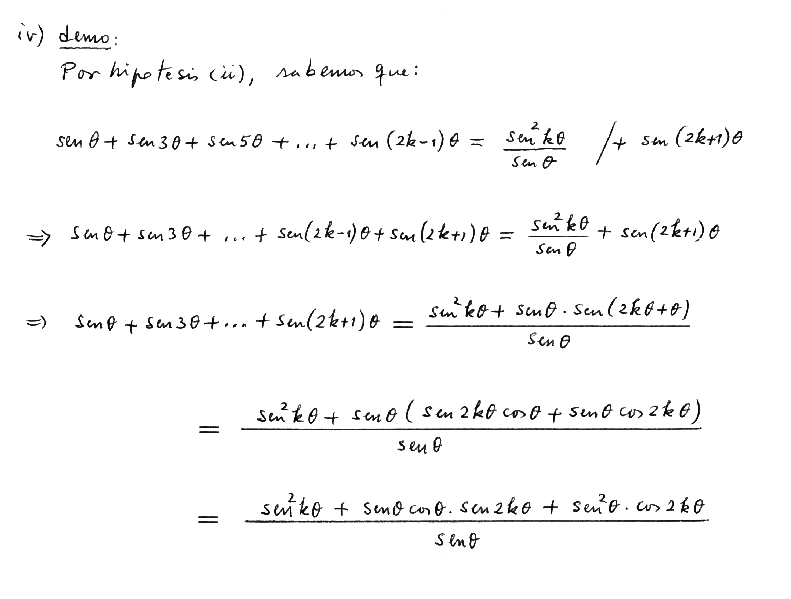 iv) demo:
Por hipotesis (ii), sabemos que:
sen θ + sen 3θ + sen 5θ + ... + sen (2k-1) θ = sen²kθ / sen θ /+ sen (2k+1) θ
⇒ sen θ + sen 3θ + ... + sen(2k-1) θ + sen(2k+1) θ = sen²kθ / sen θ + sen(2k+1) θ
⇒ sen θ + sen 3θ + ... + sen(2k+1) θ = sen²kθ + sen θ · sen(2kθ+θ) / sen θ
= sen²kθ + sen θ ( sen 2kθ cos θ + sen θ cos 2kθ) / sen θ
= sen²kθ + sen θ cos θ · sen 2kθ + sen²θ · cos 2kθ / sen θ